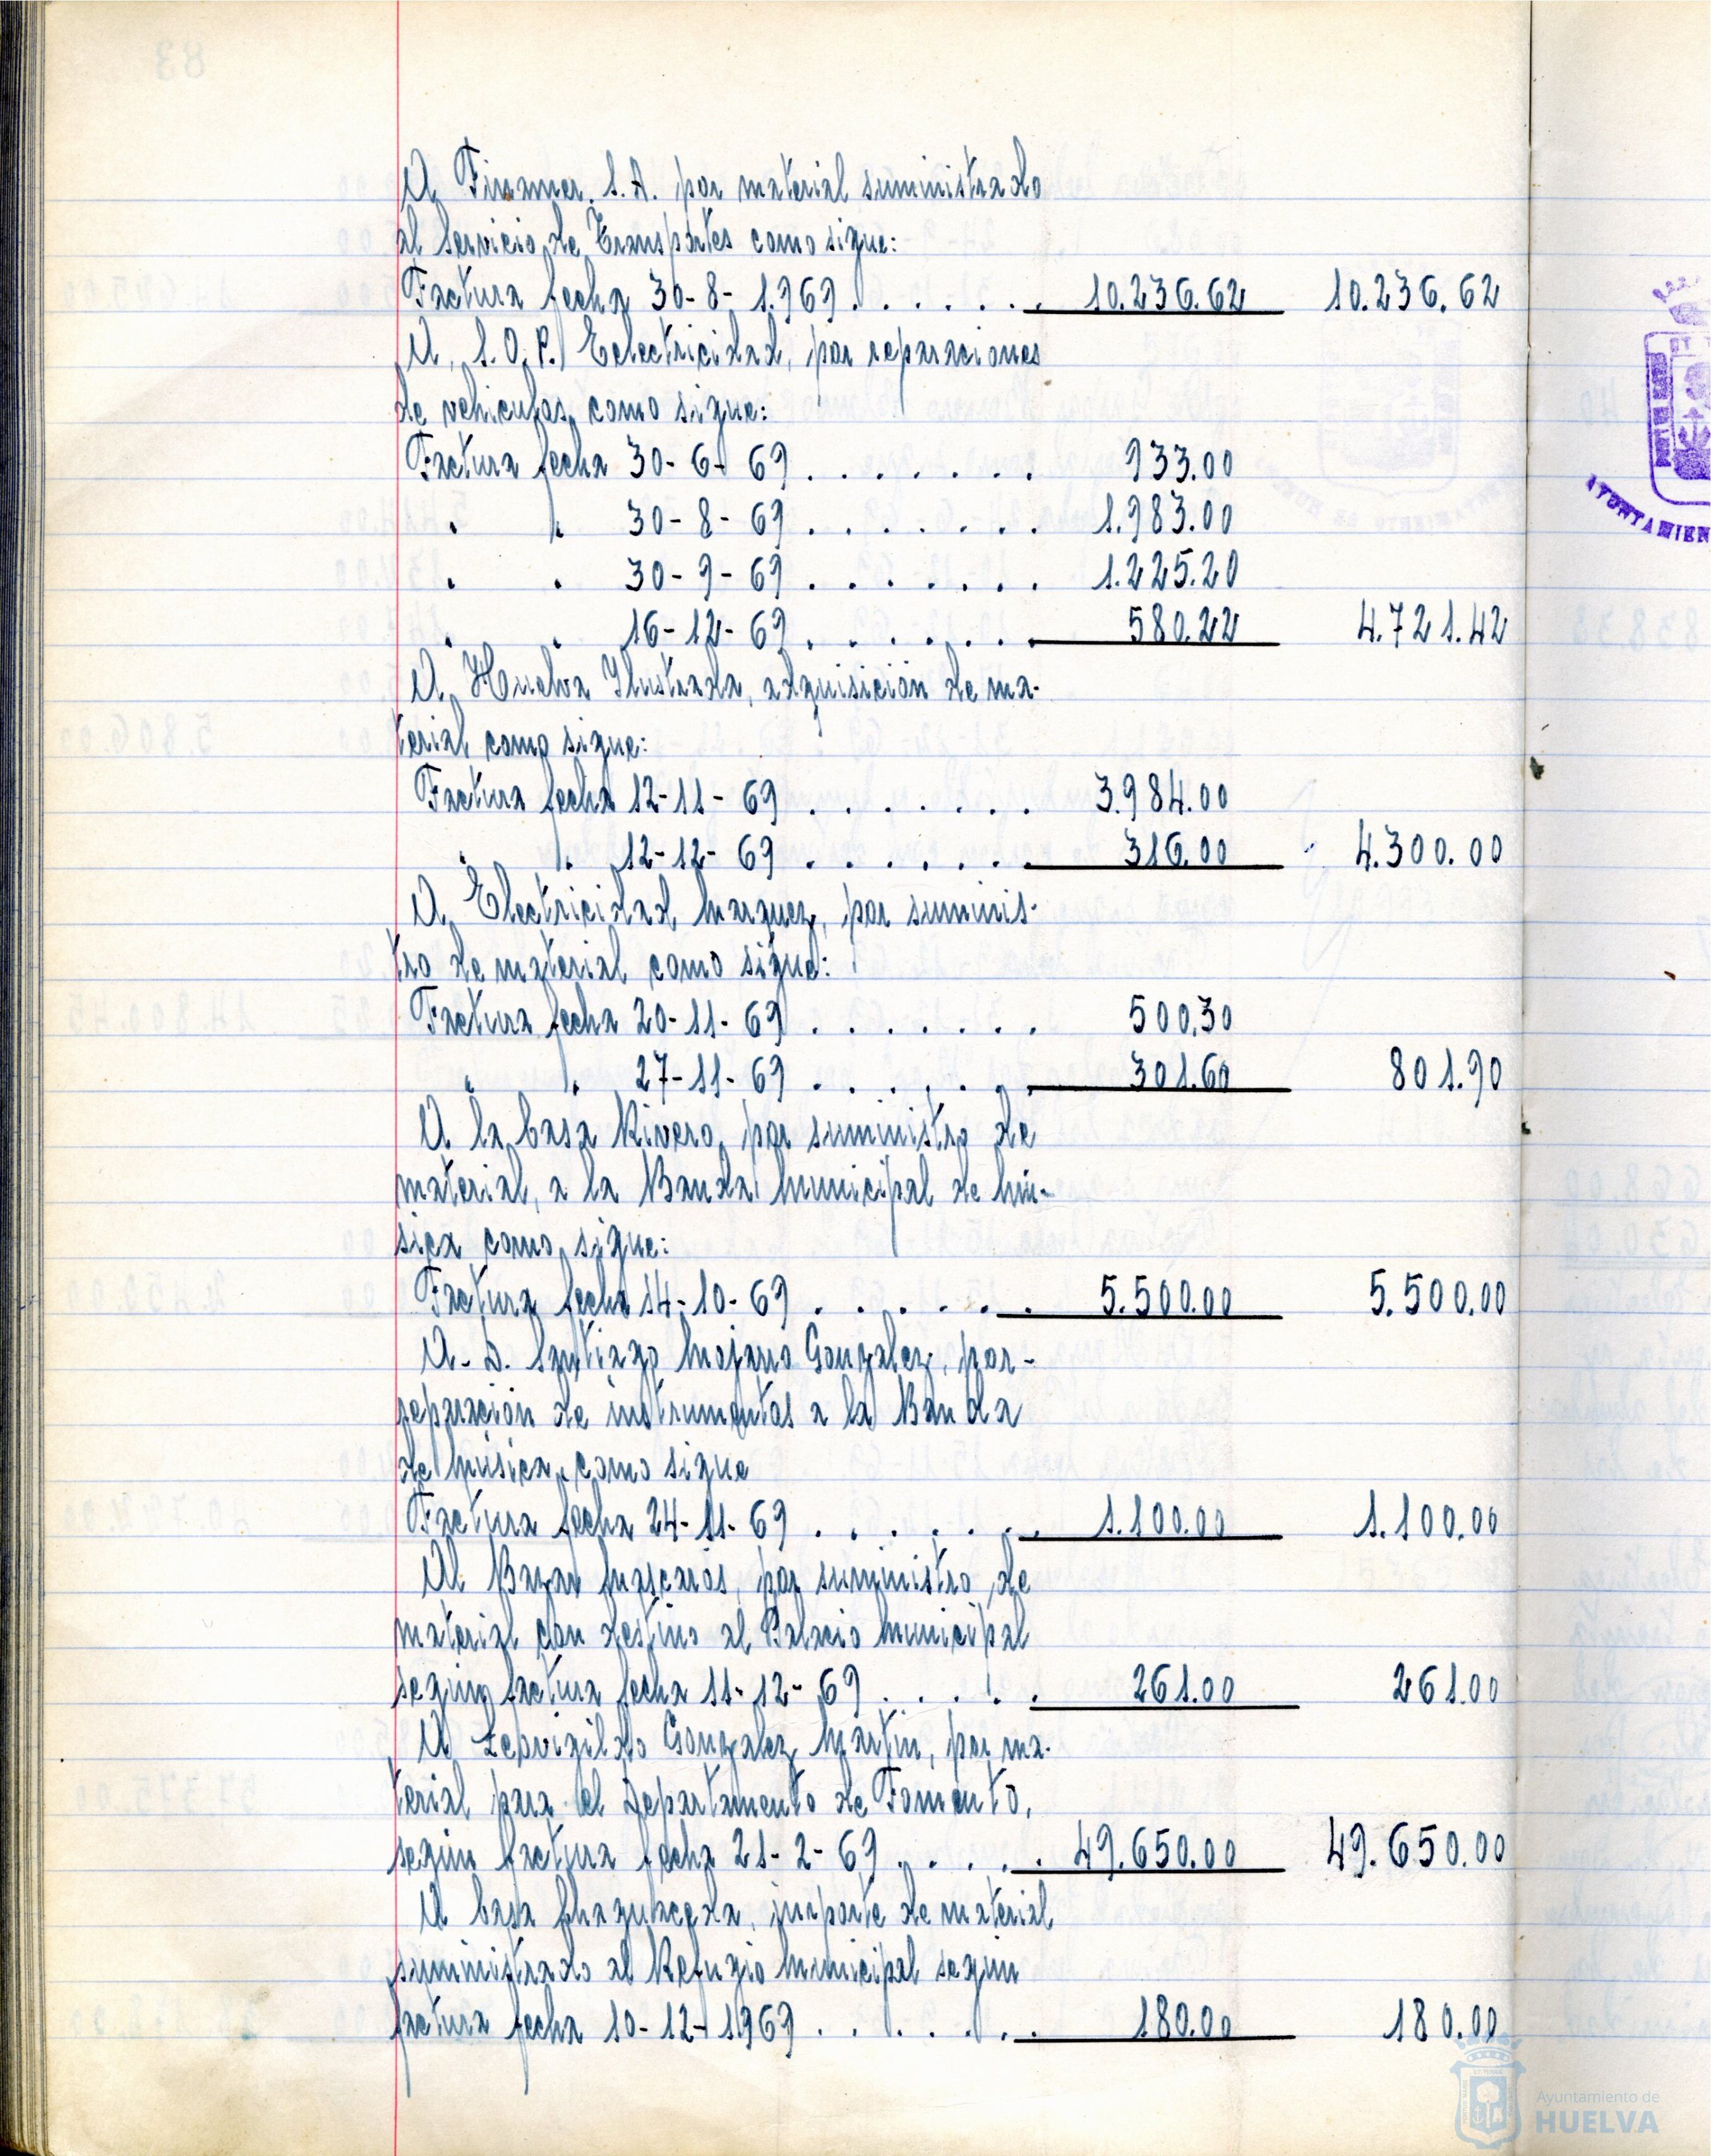 A Finamer. S.A. por material suministrado
al Servicio de Transportes como sigue:
Factura fecha 30-8-1.969 . . . . . . . 10.236.62 10.236.62
A, S.O.P. Eelectricidad, por reparaciones
de vehiculos, como sigue:
Factura fecha 30-6-69 . . . . . . . 933.00
" " 30-8-69 . . . . . . . 1.983.00
" " 30-9-69 . . . . . . . 1.225.20
" " 16-12-69 . . . . . . . 580.22 4.721.42
A, Huelva Ilustrada, adquisición de ma-
terial como sigue:
Factura fecha 12-11-69 . . . . . . 3.984.00
" " 12-12-69 . . . . . . 316.00 4.300.00
A, Electricidad Marquez, por suminis-
tro de material como sigue:
Factura fecha 20-11-69 . . . . . . . 500.30
" " 27-11-69 . . . . . . 301.60 801.90
A la Casa Rivero, por suministro de
material, a la Banda Municipal de Mú-
sica como sigue:
Factura fecha 14-10-69 . . . . . . 5.500.00 5.500.00
A - D. Santiago Mojarro Gonzalez, por-
reparación de instrumentos a la Banda
de Música, como sigue
Factura fecha 24-11-69 . . . . . . 1.100.00 1.100.00
Al Bazar Mascarós, por suministro de
material con destino al Palacio Municipal
según factura fecha 11-12-69 . . . . . 261.00 261.00
A Leovigildo Gonzalez Martín, por ma-
terial para el Departamento de Fomento,
según factura fecha 21-2-69 . . . . 49.650.00 49.650.00
A Casa importe de material
suministrado al Refugio Municipal según
factura fecha 10-12-1969 . . . . . . 180.00 180.00
AYUNTAMIEN
Ayuntamiento de
HUELVA